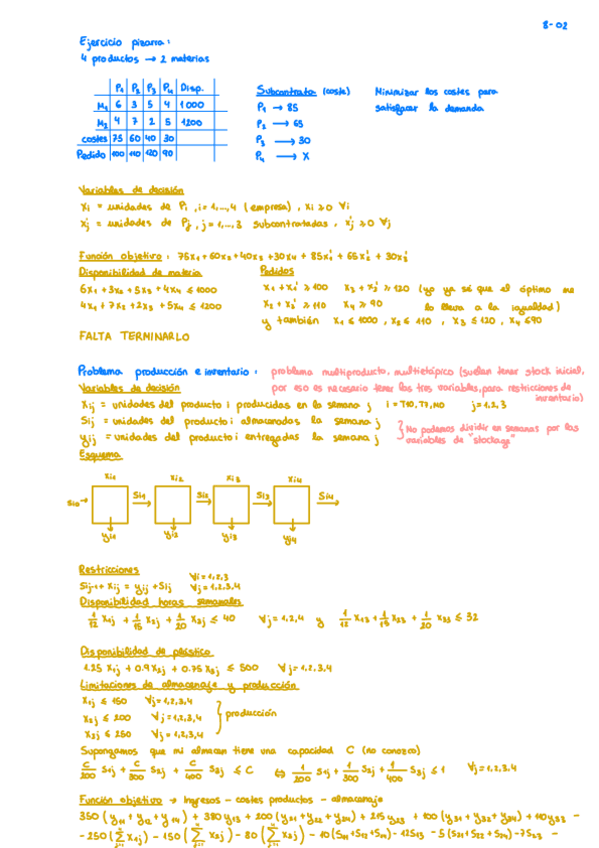 8-02
Ejercicio pizarra:
4 productos → 2 materias
P1 P2 P3 P4 Disp.
M1 6 3 5 4 1000
M2 4 7 2 5 1200
costes 75 60 40 30
Pedido 100 110 120 90
Subcontrata (coste)
P1 → 85
P2 → 65
P3 → 30
P4 → X
Minimizar los costes para
satisfacer la demanda
Variables de decisión
xi = unidades de Pi, i=1,...,4 (empresa), xi ≥ 0 ∀i
xj' = unidades de Pj, j=1,...,3 subcontratadas, xj' ≥ 0 ∀j
Función objetivo: 75x1+60x2+40x3+30x4+85x1'+65x2'+30x3'
Disponibilidad de materia
6x1+3x2+5x3+4x4 ≤ 1000
4x1+7x2+2x3+5x4 ≤ 1200
Pedidos
x1+x1' ≥ 100 x3+x3' ≥ 120 (yo ya sé que el óptimo me
x2+x2' ≥ 110 x4 ≥ 90 lo lleva a la igualdad)
y también x1 ≤ 1000, x2 ≤ 110, x3 ≤ 120, x4 ≤ 90
FALTA TERMINARLO
Problema producción e inventario: problema multiproducto, multietápico (suelen tener stock inicial,
por eso es necesario tener las tres variables, para restricciones de
inventario)
Variables de decisión
xij = unidades del producto i producidas en la semana j i = T10, T7, NO j=1,2,3
Sij = unidades del producto i almacenadas la semana j
yij = unidades del producto i entregadas la semana j
No podemos dividir en semanas por las
variables de "stockage"
Esquema
xi1 xi2 xi3 xi4
si0 Si1 Si2 Si3 Si4
yi1 yi2 yi3 yi4
Restricciones
Sij-1 + xij = yij + Sij ∀i=1,2,3 ∀j=1,2,3,4
Disponibilidad horas semanales
1/12 x1j + 1/15 x2j + 1/20 x3j ≤ 40 ∀j=1,2,4 y 1/12 x13 + 1/15 x23 + 1/20 x33 ≤ 32
Disponibilidad de plástico
1.25 x1j + 0.9 x2j + 0.75 x3j ≤ 500 ∀j=1,2,3,4
Limitaciones de almacenaje y producción
x1j ≤ 150 ∀j=1,2,3,4
x2j ≤ 200 ∀j=1,2,3,4
x3j ≤ 250 ∀j=1,2,3,4
producción
Supongamos que mi almacen tiene una capacidad C (no conozco)
C/200 S1j + C/300 S2j + C/400 S3j ≤ C ⇔ 1/200 S1j + 1/300 S2j + 1/400 S3j ≤ 1 ∀j=1,2,3,4
Función objetivo → Ingresos - costes productos - almacenaje
350(y11+y12+y14) + 380y13 + 200(y21+y22+y24) + 215y23 + 100(y31+y32+y34) + 110y33 -
-250(∑x1j) - 150(∑x2j) - 80(∑x3j) - 10(S11+S12+S14) - 12S13 - 5(S21+S22+S24) - 7S23 -